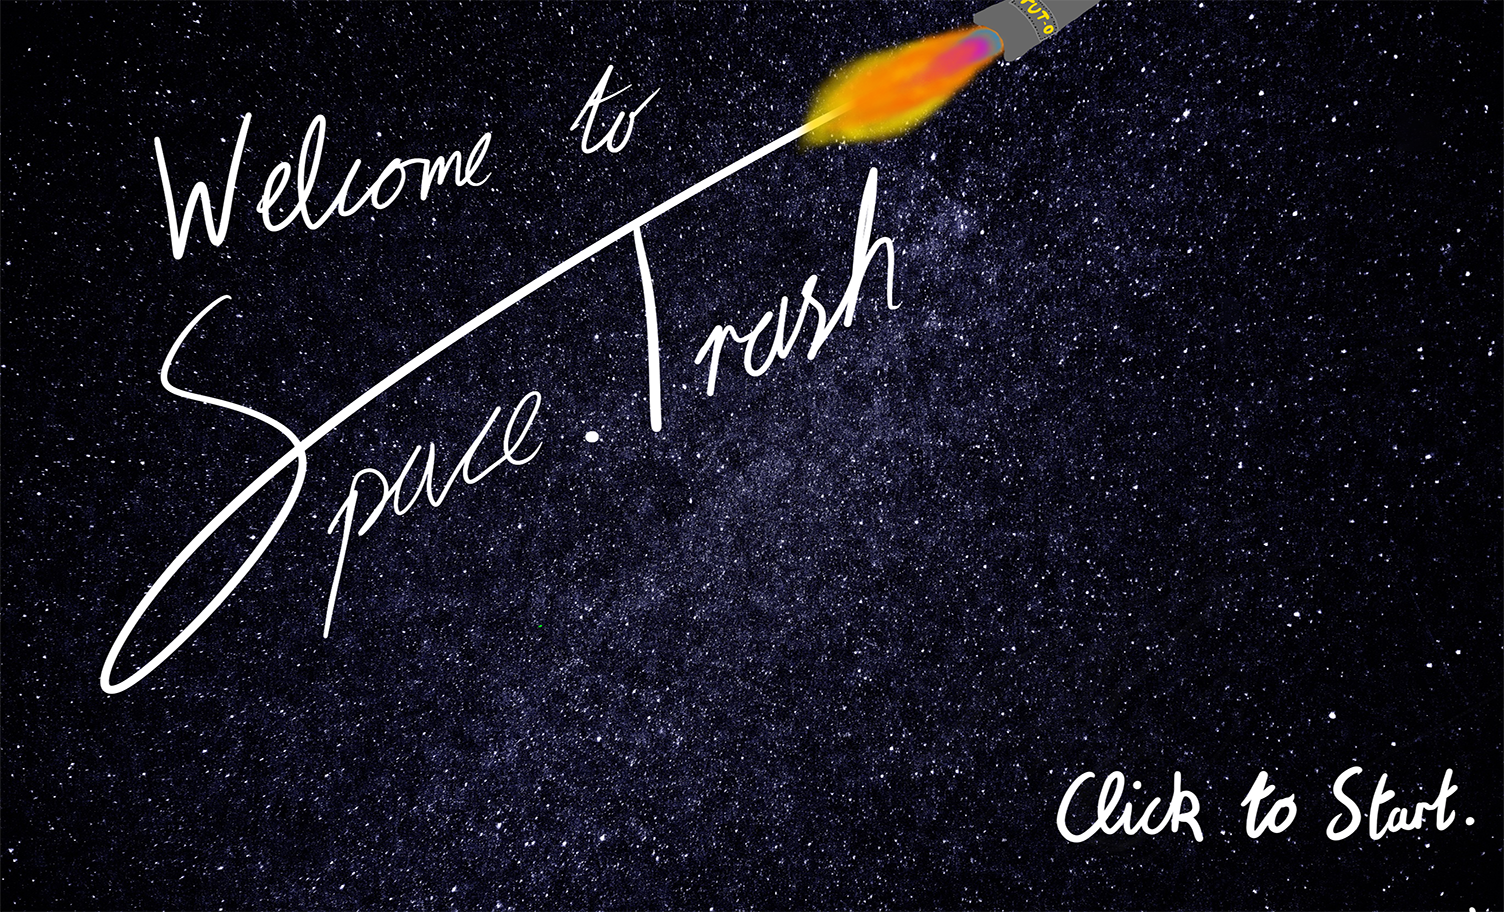 Welcome to
Space.Trash
Click to Start.